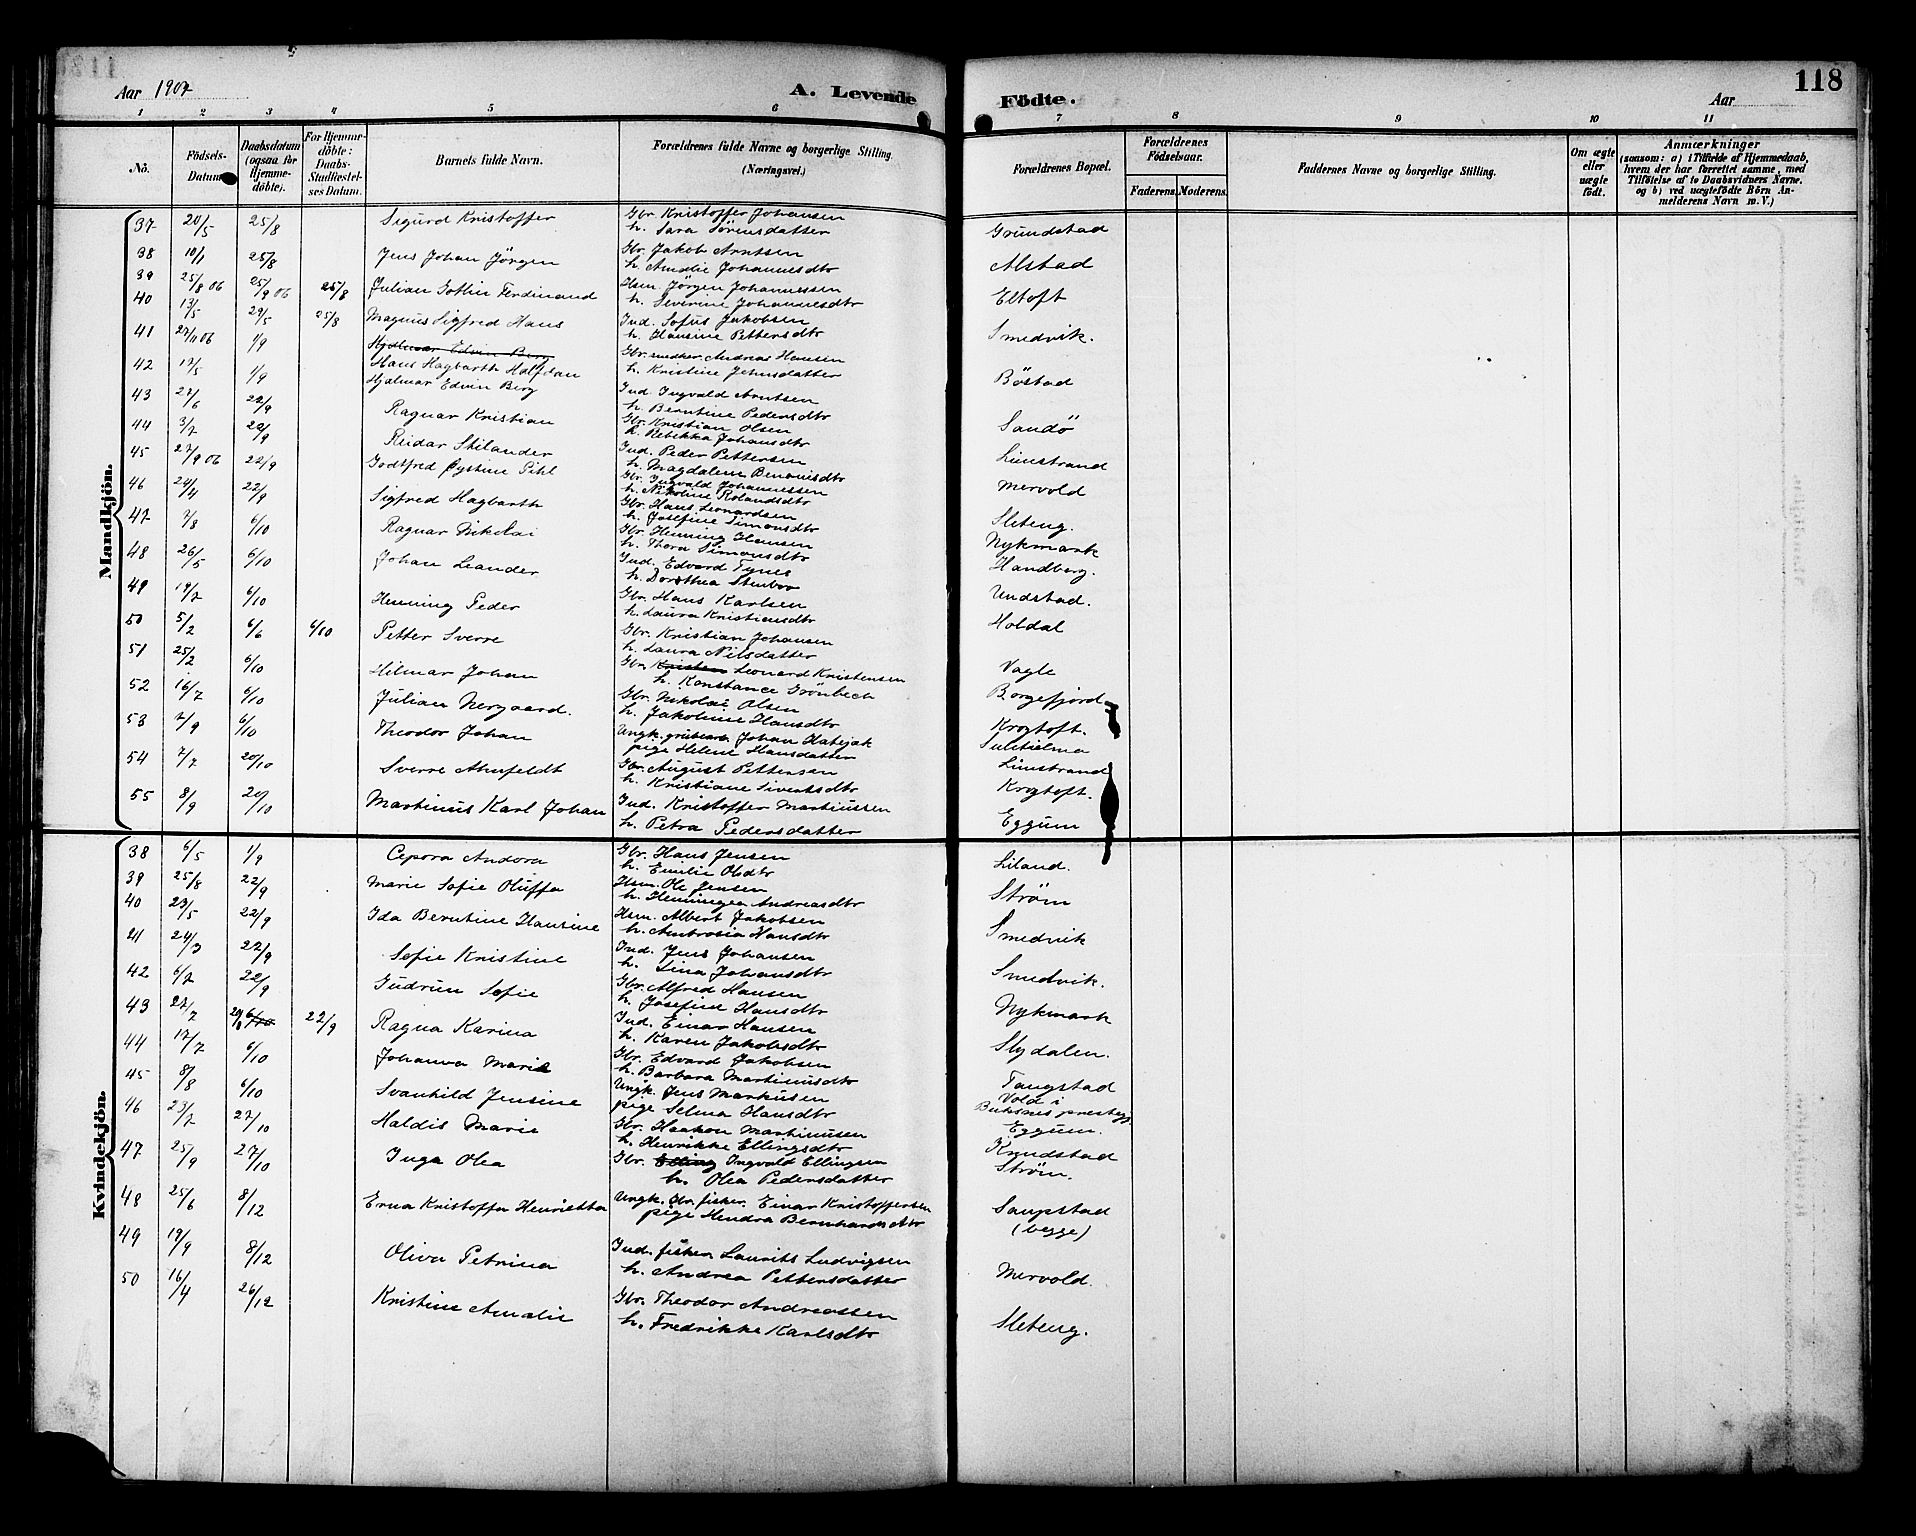 118
Aar 1907
A. Levende Födte.
Aar
1 2 3 4 5 6 7 8 9 10 11
No. Födsels-Datum. Daabsdatum (ogsaa for Hjemme-döbte). For Hjemme-döbte: Daabs-Stadfæstel-ses Datum. Barnets fulde Navn. Forældrenes fulde Navne og borgerlige Stilling. (Næringsvei.) Forældrenes Bopæl. Forældrenes Födselsaar. Faderens. Moderens. Faddernes Navne og borgerlige Stilling. Om ægte eller uægte födt. Anmærkninger (saasom: a) i Tilfælde af Hjemmedaab, hvem der har forrettet samme, med Tilföielse af to Daabsvidners Navne, og b) ved uægtefödte Börn An-melderens Navn m. V.)
Mandkjön.
37 20/5 25/8 Sigurd Kristoffer Gbr. Kristoffer Johansen
h. Sara Sörensdatter Grundstad
38 10/1 25/8 Jens Johan Jörgen Gbr. Jakob Arntsen
h. Amalie Johannesdtr Alstad
39 25/8 06 25/9 06 25/8 Julian Gottlin Ferdinand Hsm. Jörgen Johannessen
h. Severine Johannesdtr Eltoft
40 13/5 29/5 25/8 Magnus Sigfred Hans Ind. Sofus Jakobsen
h. Hansine Pettersdtr Smedvik.
41 27/11 06 1/9 Hjalmar Edvin Berg
Hans Hagbarth Halfdan Gbr. snedker Andreas Hansen
h. Kristine Jensdatter Böstad
42 17/5 1/9 Hjalmar Edvin Berg Ind. Ingvald Arntsen
h. Berntine Pedersdtr Sandö
43 27/6 22/9 Ragnar Kristian Gbr. Kristian Olsen
h. Rebekka Johansdtr Limstrand
44 3/7 22/9 Reidar Stilander Ind. Peder Pettersen
h. Magdalene Benonisdtr Mervold
45 27/9 06 22/9 Godtfred Öystine Pihl Gbr. Ingvald Johannessen
h. Nikoline Rolandsdtr Sleteng.
46 24/4 22/9 Sigfred Hagbarth Gbr. Hans Leonardsen
h. Josefine Simonsdtr Nykmark
47 7/8 6/10 Ragnar Nikolai Gbr. Henning Hansen
h. Thora Simonsdtr Handberg.
48 26/5 6/10 Johan Leander Ind. Edvard Tynes
h. Dorothea Stenbov Undstad.
49 19/7 6/10 Henning Peder Gbr. Hans Karlsen
h. Laura Kristiansdtr Holdal
50 5/2 6/6 6/10 Petter Sverre Gbr. Kristian Johansen
h. Laura Nilsdatter Vagle
51 25/2 6/10 Hilmar Johan Gbr. Kristen Leonard Kristensen
h. Konstance Grönbech Borgefjord
52 16/7 6/10 Julian Nergaard. Gbr. Nikolai Olsen
h. Jakobine Hansdtr Krogtoft.
53 7/9 6/10 Theodor Johan Ungk. grubearb. Johan Hatejak
pige Helene Hansdatter Sulitjelma
Limstrand
54 7/7 20/10 Sverre Ahnfeldt Gbr. August Pettersen
h. Kristiane Sivertsdtr Krogtoft.
55 8/9 20/10 Martinus Karl Johan Ind. Kristoffer Martinussen
h. Petra Pedersdatter Eggum
Kvindekjön.
38 6/5 1/9 Cepora Andora Gbr. Hans Jensen
h. Emilie Olsdtr Liland.
39 25/8 22/9 Marie Sofie Oluffa Hsm. Ole Jensen
h. Henningea Andreasdtr Ström
40 23/5 22/9 Ida Berntine Hansine Hsm. Albert Jakobsen
h. Ambrosia Hansdtr Smedvik
41 24/3 22/9 Sofie Kristine Ind. Jens Johansen
h. Lina Johansdtr Smedvik.
42 6/7 22/9 Gudrun Sofie Gbr. Alfred Hansen
h. Josefine Hansdtr Nykmark
43 27/7 6/10 22/9 Ragna Karina Ind. Einar Hansen
h. Karen Jakobsdtr Slydalen.
44 17/7 6/10 Johanna Marie Gbr. Edvard Jakobsen
h. Barbara Martinusdtr Tangstad
45 8/8 6/10 Svanhild Jensine Ungk. Jens Markusen
pige Selma Hansdtr Vold i
Buksnes prestegj
Eggum.
46 23/7 27/10 Haldis Marie Gbr. Haakon Martinusen
h. Henrikke Ellingsdtr Knudstad
47 25/9 27/10 Inga Olea Gbr. Elling Ingvald Ellingsen
h. Olea Pedersdatter Ström.
48 25/6 8/12 Erna Kristoffa Henrietta Ungk. Gbr. fisker Einar Kristoffersen
pige Hendra Bernhardsdtr Saupstad
(begge)
49 19/9 8/12 Oliva Petrina Ind. fisker Laurits Ludvigsen
h. Andrea Pettersdatter Mervold.
50 16/4 26/12 Kristine Amalie Gbr. Theodor Andreassen
h. Fredrikke Karlsdtr Sleteng.